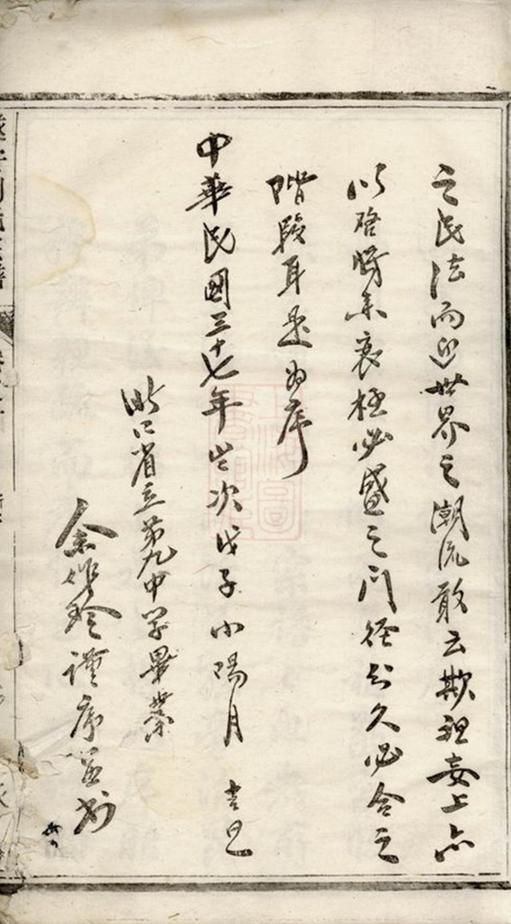 之民法而迎世界之潮流敢云欺祖妄上亦
以啓將來衰極必盛之門徑分久必合之
階段耳是為序
中華民國三十七年歲次戊子小陽月 吉旦
浙江省立第九中學畢業
余作 謹序並書